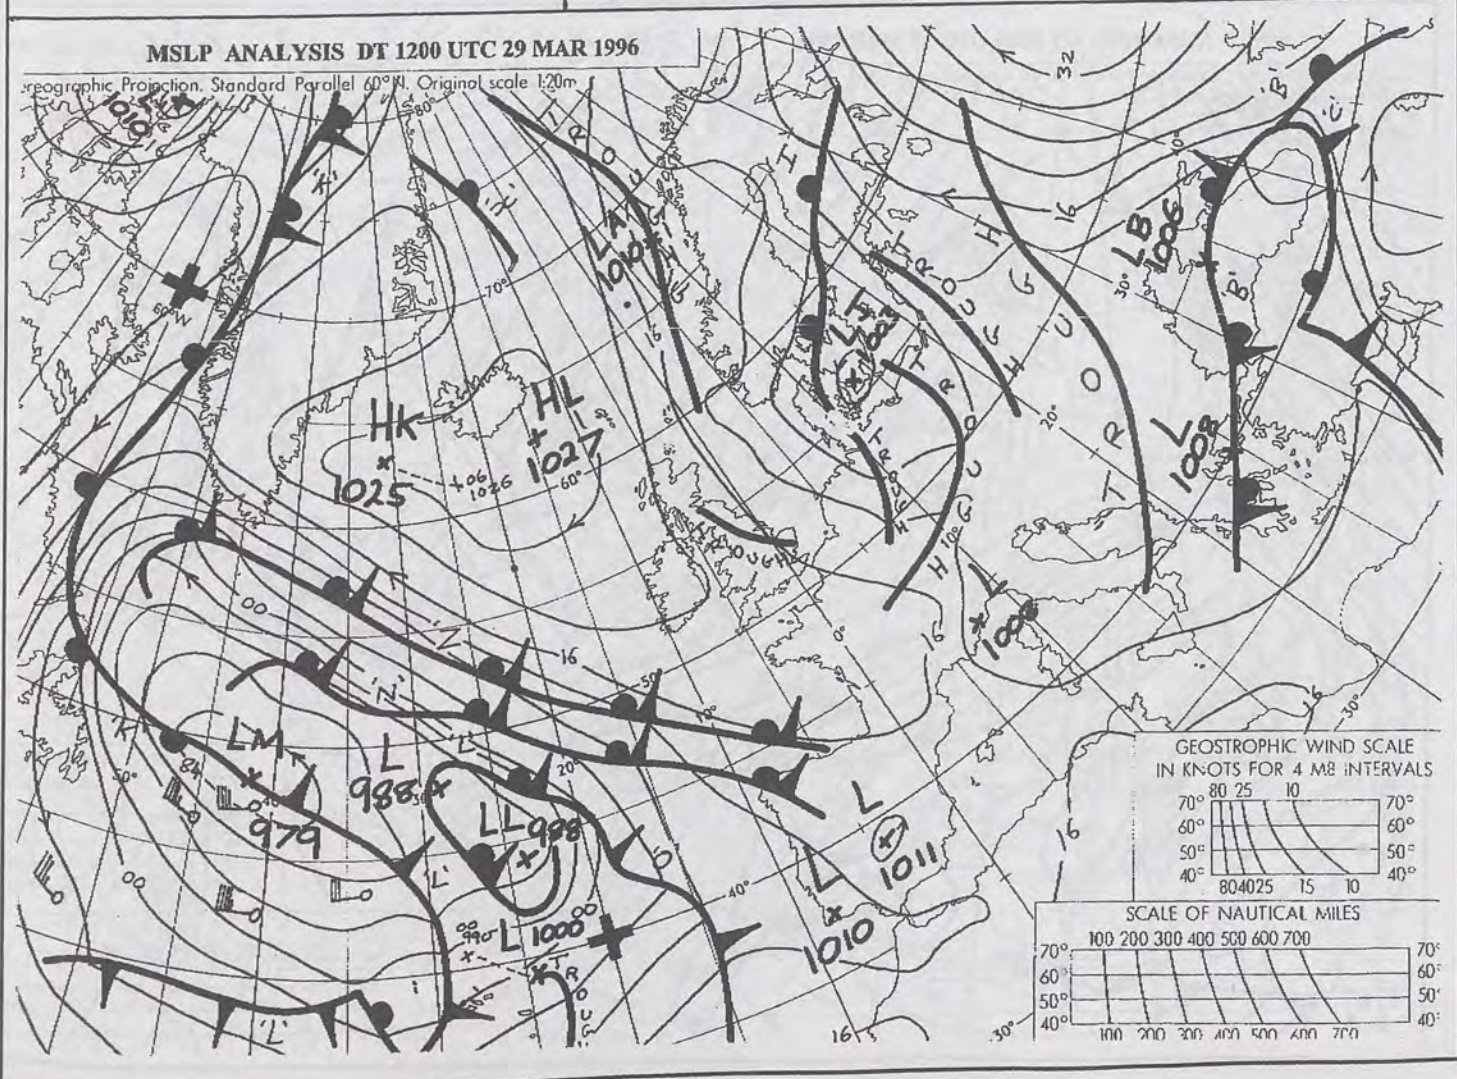 MSLP ANALYSIS DT 1200 UTC 29 MAR 1996
reographic Projection. Standard Parallel 60°N. Original scale 1:20m
80°
32
'B'
'C'
1010
'K'
'X'
TROUGH
LA
1010
H
16
H
LB
1006
30°
'B'
60°W
70°
TROUGH
TROUGH
TROUGH
20°
HK
1025
+06
1026
HL
1027
60°
L
1008
TROUGH
TROUGH
10°
L
1006
00
'Z'
16
0°
16
50°
10°
'N'
16
30°
'K'
LM
84
979
L
988
'L'
20°
LL
988
'O'
L
1011
L
1010
40°
00
'L'
00
996
L 1000
00
TROUG
'L'
16
16
30°
GEOSTROPHIC WIND SCALE
IN KNOTS FOR 4 MB INTERVALS
80 25 10
70° 70°
60° 60°
50° 50°
40° 40°
804025 15 10
SCALE OF NAUTICAL MILES
100 200 300 400 500 600 700
70° 70°
60° 60°
50° 50°
40° 40°
100 200 300 400 500 600 700